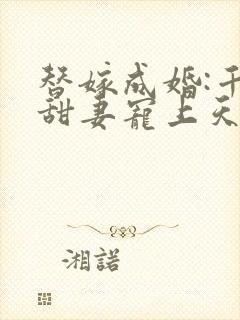 替嫁成婚:千
甜妻寵上天
湘諾